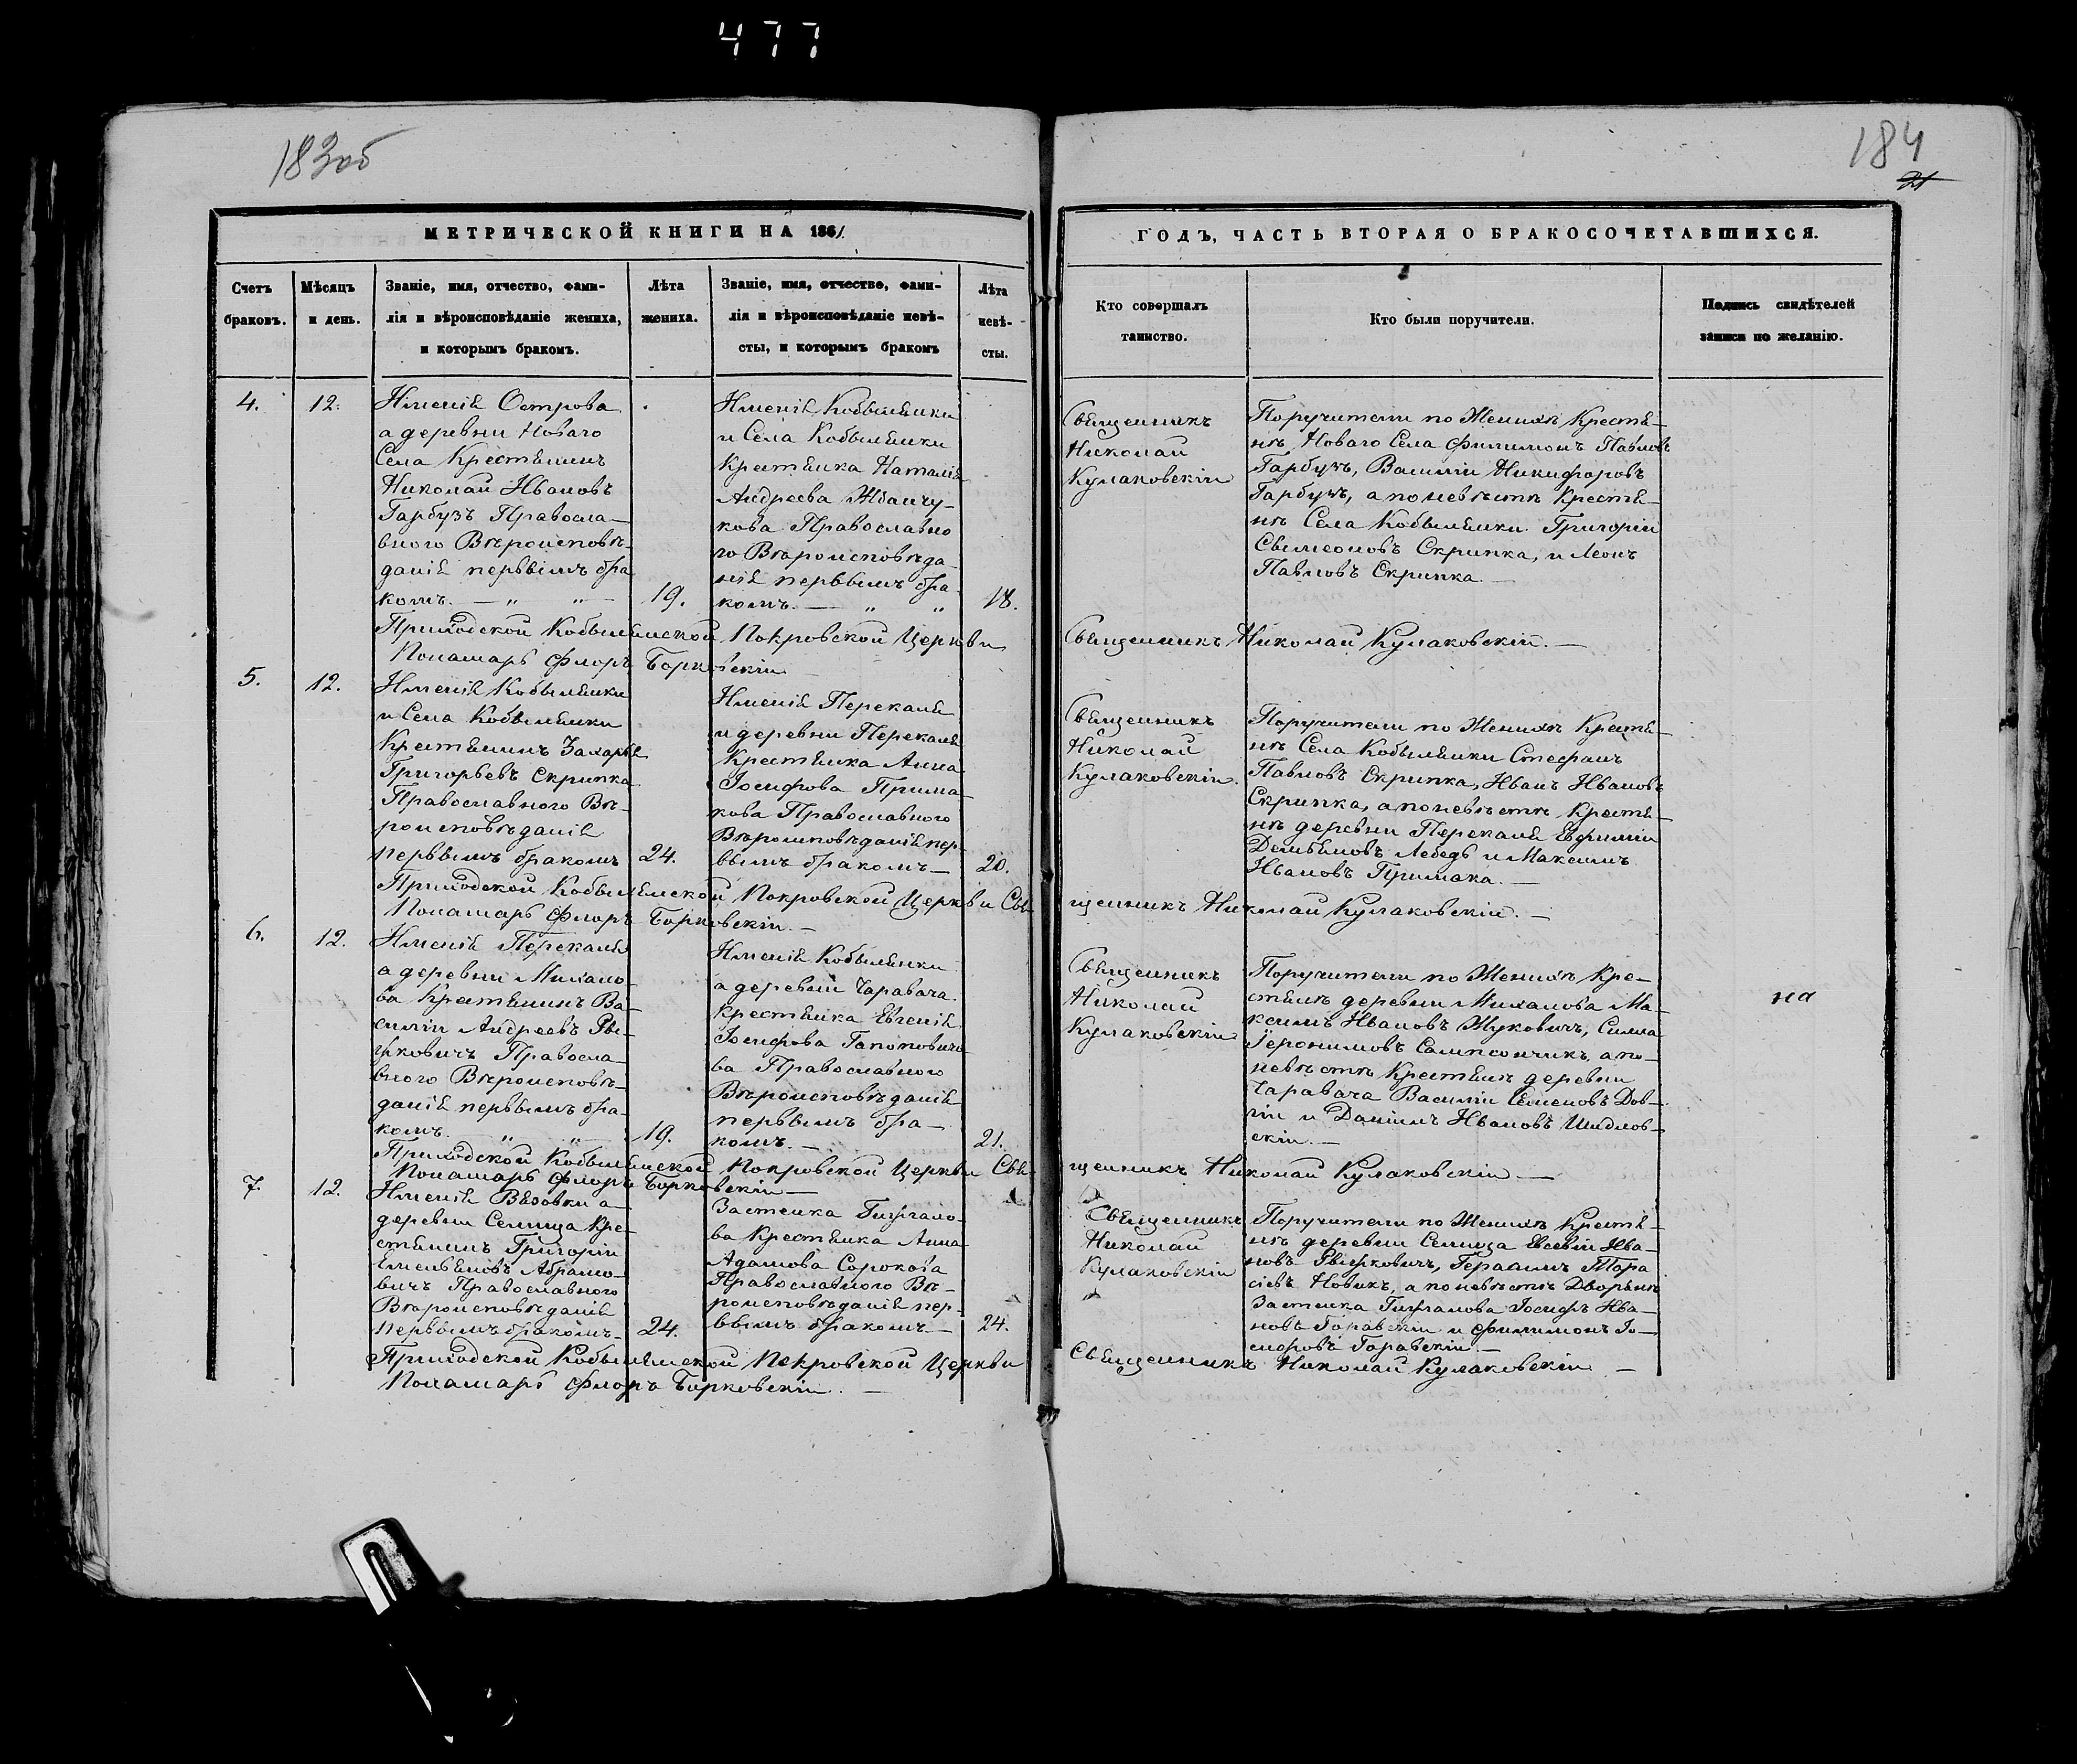 477
183об
184
21
МЕТРИЧЕСКОЙ КНИГИ НА 1861.
ГОДЪ, ЧАСТЬ ВТОРАЯ О БРАКОСОЧЕТАВШИХСЯ.
Счетъ
браковъ.
Мѣсяцъ
и день.
Званіе, имя, отчество, фами-
лія и вѣроисповѣданіе жениха,
и которымъ бракомъ.
Лѣта
жениха.
Званіе, имя, отчество, фами-
лія и вѣроисповѣданіе невѣ-
сты, и которымъ бракомъ
Лѣта
невѣ-
сты.
Кто совершалъ
таинство.
Кто были поручители.
Подпись свидѣтелей
записи по желанію.
4.
12.
Имѣнія Острова
а деревни Новаго
Села Крестянинъ
Николай Ивановъ
Гарбузъ Правосла-
вного Вѣроисповѣ-
данія первымъ бра
комъ. — „ „ —
19.
Имѣнія Кобылянки
и Села Кобылянки
Крестянка Наталія
Андреева Жванчу-
кова Православно
го Вѣроисповѣда-
нія первымъ бра-
комъ. — „ „
18.
Священникъ
Николай
Кулаковскій
Поручители по Женихѣ Крестя-
нѣ Новаго Села Филимонъ Павловъ
Гарбузъ, Василій Никифоровъ
Гарбузъ, а по невѣстѣ Крестя-
нѣ Села Кобылянки Григорій
Свимеоновъ Скрипка, и Леонъ
Павловъ Скрипка. —
Приходской Кобылянской Покровской Церкви Священникъ Николай Кулаковскій. —
Пономарь Флоръ Борковскій
5.
12.
Имѣнія Кобылянки
и Села Кобылянки
Крестянинъ Захарія
Григорьевъ Скрипка
Православного Вѣ-
роисповѣданія
первымъ бракомъ
24.
Имѣнія Перекаля
и деревни Перекаля
Крестянка Анна
Іосифова Прима-
кова Православного
Вѣроисповѣданія пер-
вымъ бракомъ —
20.
Священникъ
Николай
Кулаковскій.
Поручители по Женихѣ Крестя-
нѣ Села Кобылянки Стефанъ
Павловъ Скрипка, Иванъ Ивановъ
Скрипка, а по невѣстѣ Крестя-
нѣ деревни Перекаля Евфимій
Демьяновъ Лебедь и Максимъ
Ивановъ Примака. —
Приходской Кобылянской Покровской Церкви Священникъ Николай Кулаковскій. —
Пономарь Флоръ Борковскій. —
6.
12.
Имѣнія Перекаля
а деревни Михало-
ва Крестянинъ Ва-
силій Андреевъ
Правосла-
вного Вѣроисповѣ-
данія первымъ бра-
комъ. „ „ —
19.
Имѣнія Кобылянки
а деревни Чаравача
Крестянка Евгенія
Іосифова Гапоновичо-
ва Православного
Вѣроисповѣданія
первымъ бра-
комъ. —
21.
Священникъ
Николай
Кулаковскій
Поручители по Женихѣ Кре-
стянѣ деревни Михалова Ма-
ксимъ Ивановъ Жуковичъ, Симa
Іеронимовъ Сампсончикъ, а по-
невѣстѣ Крестянѣ деревни
Чаравача Василій Семеновъ Дов-
гій и Даніилъ Ивановъ Шидлов-
скій. —
на
Приходской Кобылянской Покровской Церкви Священникъ Николай Кулаковскій —
Пономарь Флоръ Борковскій —
7.
12.
Имѣнія Вязовки а
деревни Селища Кре-
стянинъ Григорій
Емельяновъ Абрамо-
вичъ Православного
Вѣроисповѣданія
первымъ бракомъ-
24.
Застенка
Крестянка Анна
Адамова Сорокова
Православного Вѣ-
роисповѣданія пер-
вымъ бракомъ —
24.
Священникъ
Николай
Кулаковскій
Поручители по Женихѣ Крестя-
нѣ деревни Селища Евсевій Ива-
новъ Герасимъ Тара
сіевъ Новикъ, а по невѣстѣ Дворянѣ
Застенка Іосифъ Ива-
новъ Горавскій и Филимонъ Іо-
сифовъ Горавскій —
Приходской Кобылянской Покровской Церкви Священникъ Николай Кулаковскій —
Пономарь Флоръ Борковскій. —